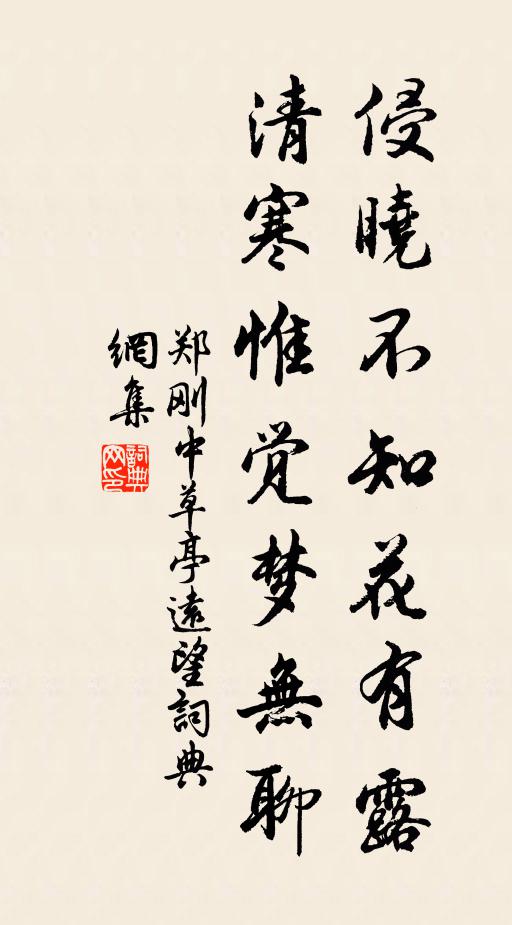 侵曉不知花有露
清寒惟觉梦無聊
郑刚中草亭遠望詞典
網集
詞典
网印